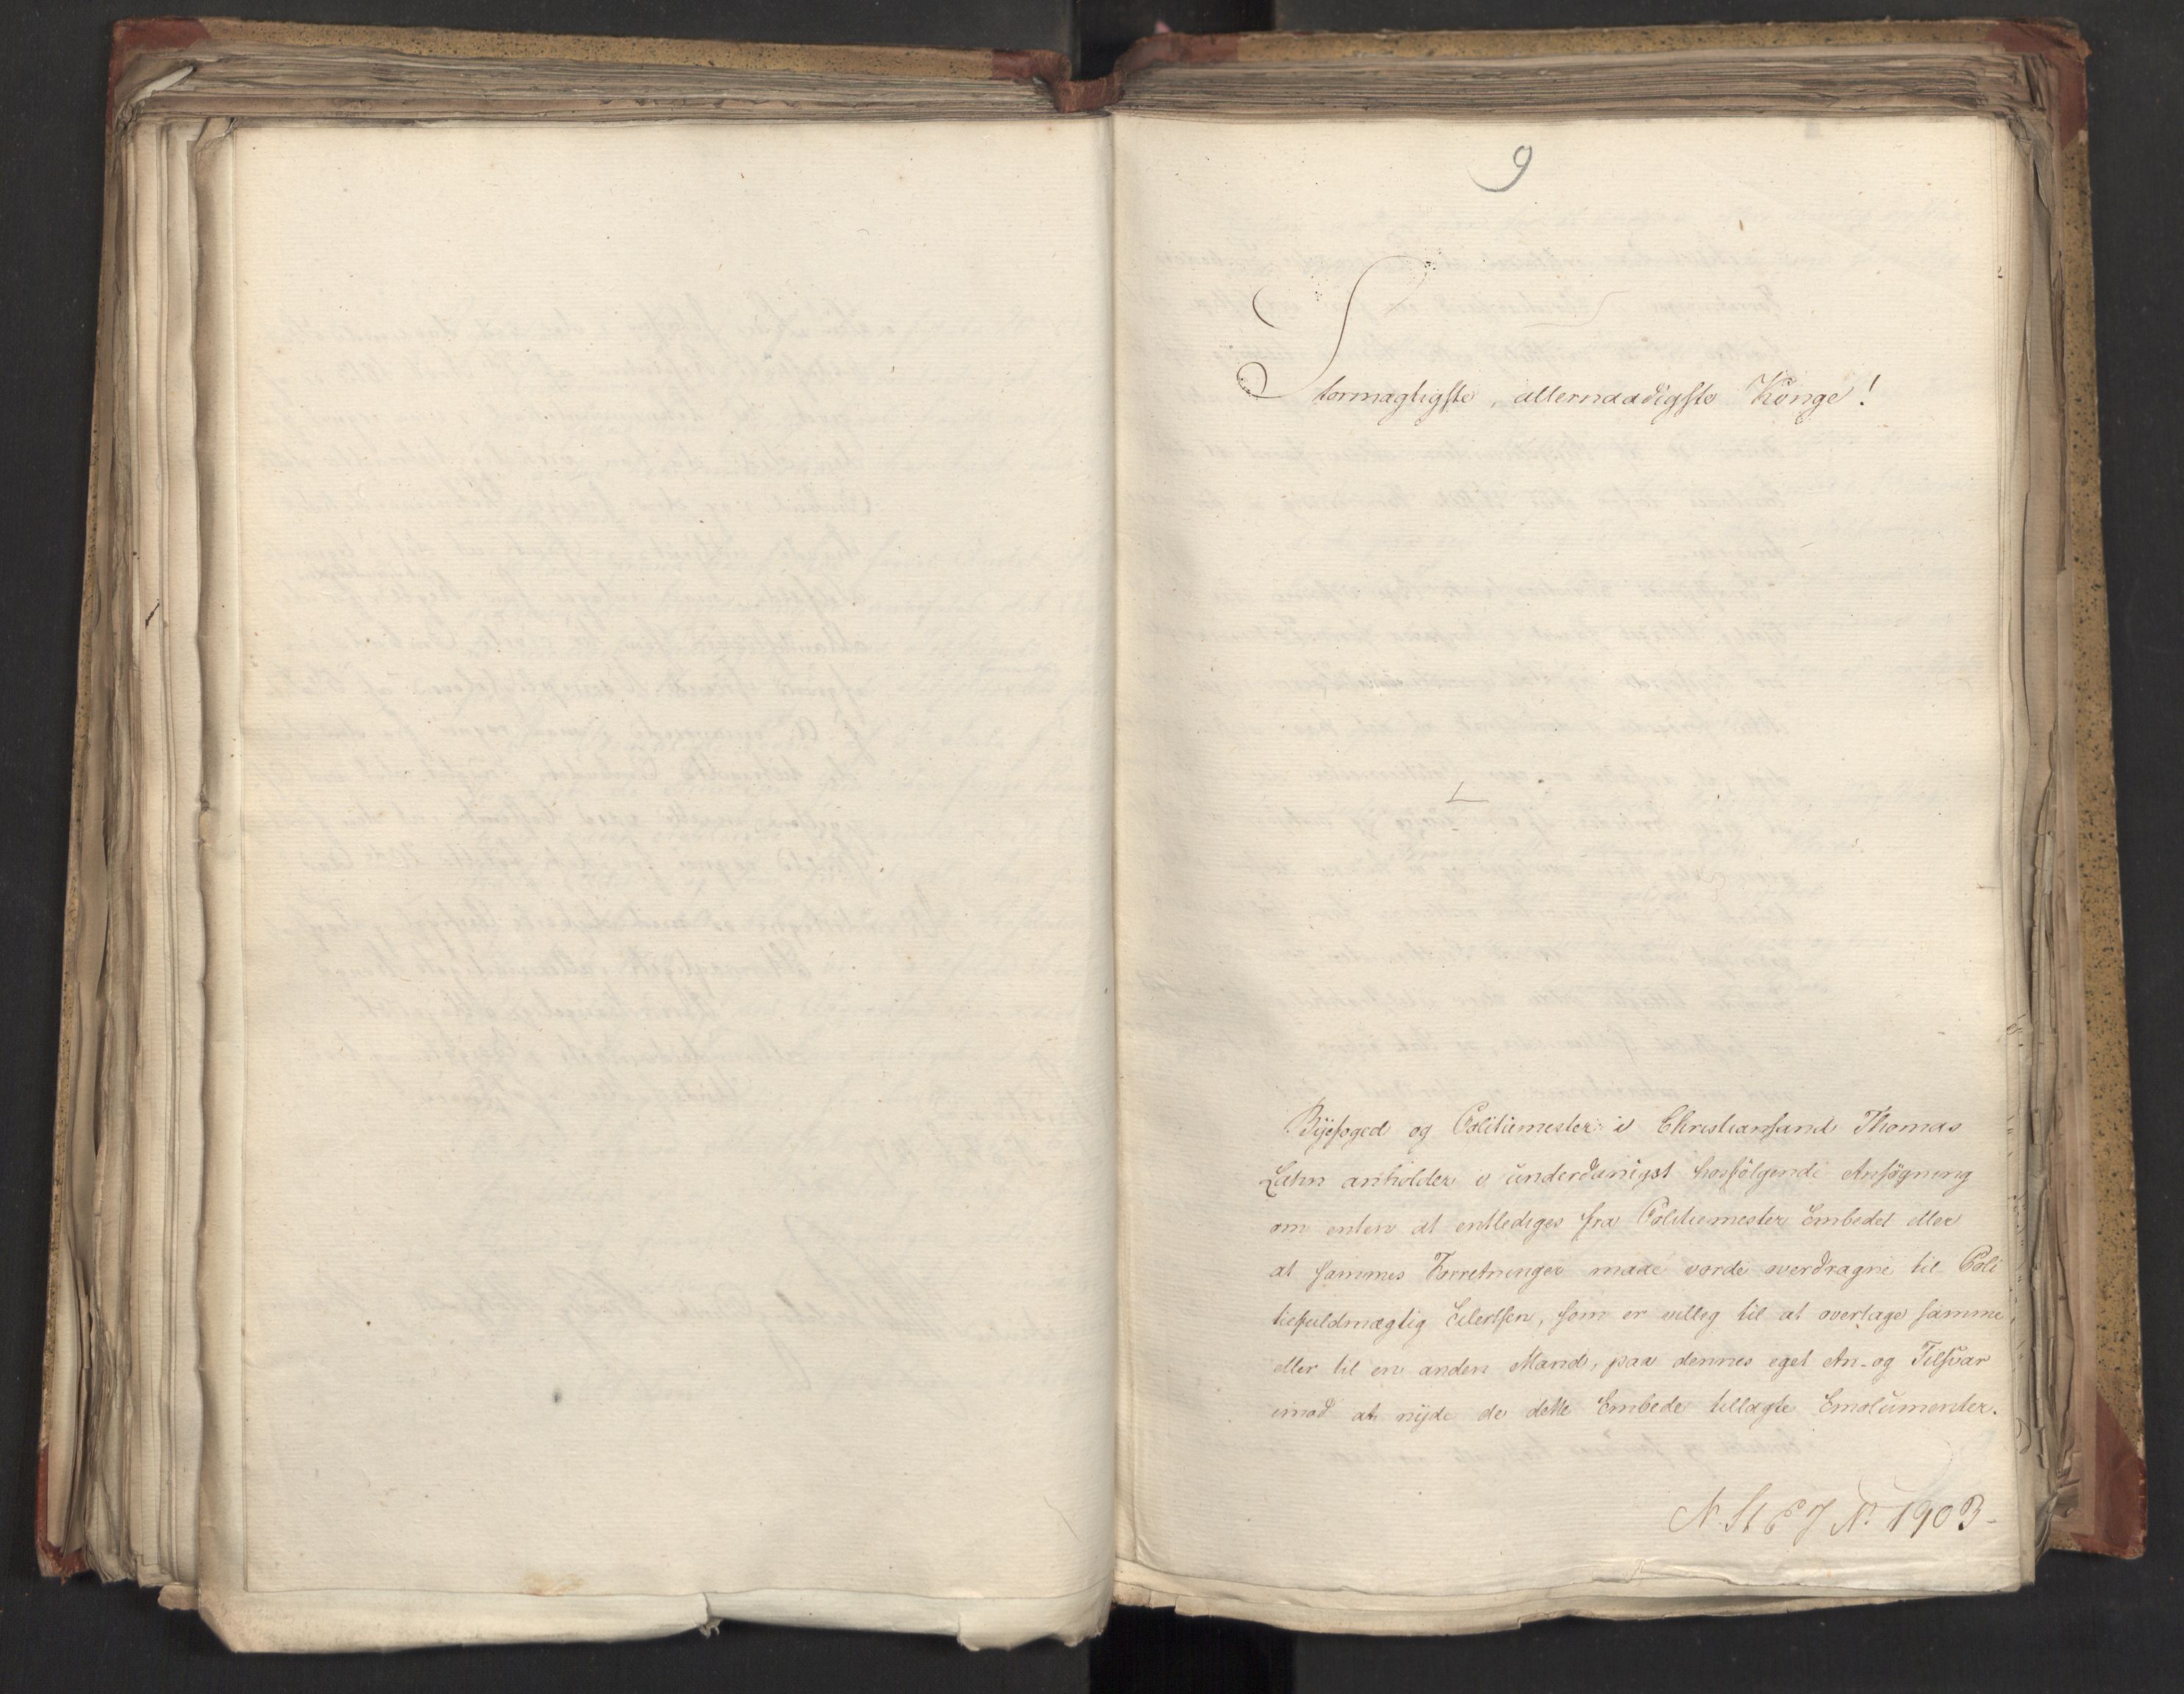 9
Stormagtigste, allernaadigste Konge!
Byefoged og Politiemester i Christiansand Thomas
Lahn anholder i underdanigst hosfölgende Ansögning
om enten at entlediges fra Politiemester Embedet eller
at sammes Forretninger maae vorde overdragne til Poli
tiefuldmægtig Eilertsen, som er villig til at overtage samme
eller til en anden Mand, paa dennes eget An- og Tilsvar
imod at nyde de dette Embede tillagte Emolumenter.
N. St. E J No 1903-